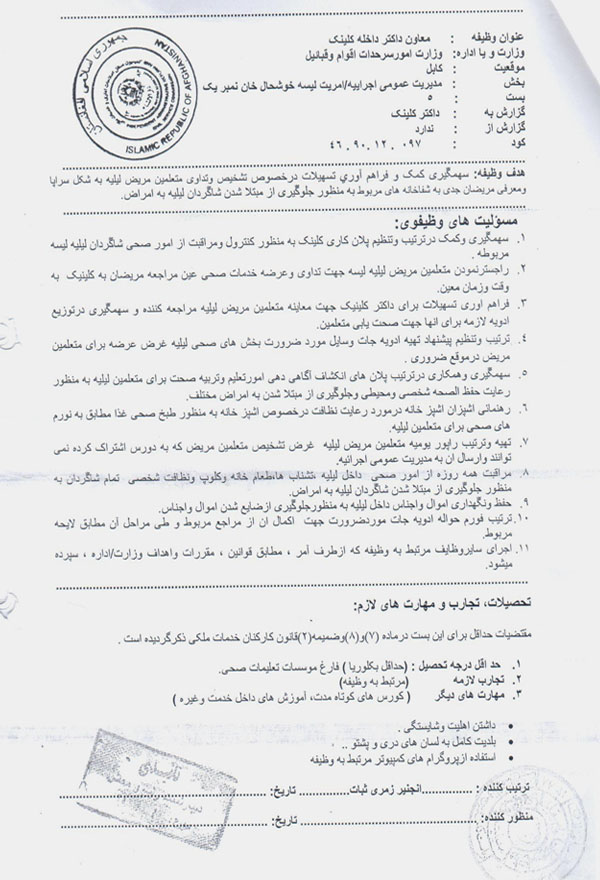 جمهوری اسلامی افغانستان
ISLAMIC REPUBLIC OF AFGHANISTAN
عنوان وظیفه : معاون داکتر داخله کلینک
وزارت و یا اداره: وزارت امورسرحدات اقوام وقبائیل
موقعیت : کابل
بخش : مدیریت عمومی اجراییه/امریت لیسه خوشحال خان نمبر یک
بست : ۵
گزارش به : داکتر کلینک
گزارش از : ندارد
کود : ۰۹۷ . ۱۲ . ۹۰ . ۴۶
هدف وظیفه: سهمگیری کمک و فراهم آوري تسهیلات درخصوص تشخیص وتداوی متعلمین مریض لیلیه به شکل سراپا
ومعرفی مریضان جدی به شفاخانه های مربوط به منظور جلوگیری از مبتلا شدن شاگردان لیلیه به امراض.
مسؤلیت های وظیفوی:
۱. سهمگیری وکمک درترتیب وتنظیم پلان کاری کلینک به منظور کنترول ومراقبت از امور صحی شاگردان لیلیه لیسه
مربوطه .
۲. راجسترنمودن متعلمین مریض لیلیه لیسه جهت تداوی وعرضه خدمات صحی عین مراجعه مریضان به کلینیک به
وقت وزمان معین.
۳. فراهم اوری تسهیلات برای داکتر کلینیک جهت معاینه متعلمین مریض لیلیه مراجعه کننده و سهمگیری درتوزیع
ادویه لازمه برای انها جهت صحت یابی متعلمین.
۴. ترتیب وتنظیم پیشنهاد تهیه ادویه جات وسایل مورد ضرورت بخش های صحی لیلیه غرض عرضه برای متعلمین
مریض درموقع ضروری .
۵. سهمگیری وهمکاری درترتیب پلان های انکشاف آگاهی دهی امورتعلیم وتربیه صحت برای متعلمین لیلیه به منظور
رعایت حفظ الصحه شخصی ومحیطی وجلوگیری از مبتلا شدن به امراض مختلف.
۶. رهنمائی اشپزان اشپز خانه درمورد رعایت نظافت درخصوص اشپز خانه به منظور طبخ صحی غذا مطابق به نورم
های صحی برای متعلمین لیلیه.
۷. تهیه وترتیب راپور یومیه متعلمین مریض لیلیه غرض تشخیص متعلمین مریض که به دورس اشتراک کرده نمی
توانند وارسال ان به مدیریت عمومی اجرائیه.
۸. مراقبت همه روزه از امور صحی داخل لیلیه ،تشناب هاءطعام خانه وکلوپ ونظافت شخصی تمام شاگردان به
منظور جلوگیری از مبتلا شدن شاگردان لیلیه به امراض.
۹. حفظ ونگهداری اموال واجناس داخل لیلیه به منظورجلوگیری ازضایع شدن اموال واجناس.
۱۰. ترتیب فورم حواله ادویه جات موردضرورت جهت اکمال ان از مراجع مربوط و طی مراحل آن مطابق لایحه
مربوط.
۱۱. اجرای سایروظایف مرتبط به وظیفه که ازطرف آمر ، مطابق قوانین ، مقررات واهداف وزارت/اداره ، سپرده
میشود.
تحصیلات، تجارب و مهارت های لازم:
مقتضیات حداقل برای این بست درماده (۷)و(۸)وضمیمه(۲)قانون کارکنان خدمات ملکی ذکرگردیده است .
۱. حد اقل درجه تحصیل : (حداقل بکلوریا ) فارغ موسسات تعلیمات صحی.
۲. تجارب لازمه (مرتبط به وظیفه)
۳. مهارت های دیگر ( کورس های کوتاه مدت، آموزش های داخل خدمت وغیره )
• داشتن اهلیت وشایستگی .
• بلدیت کامل به لسان های دری و پشتو ..
• استفاده ازپروگرام های کمپیوتر مرتبط به وظیفه
ترتیب کننده : ...............انجنیر زمری ثبات............... تاریخ: ...............
منظور کننده: ............... تاریخ: ...............